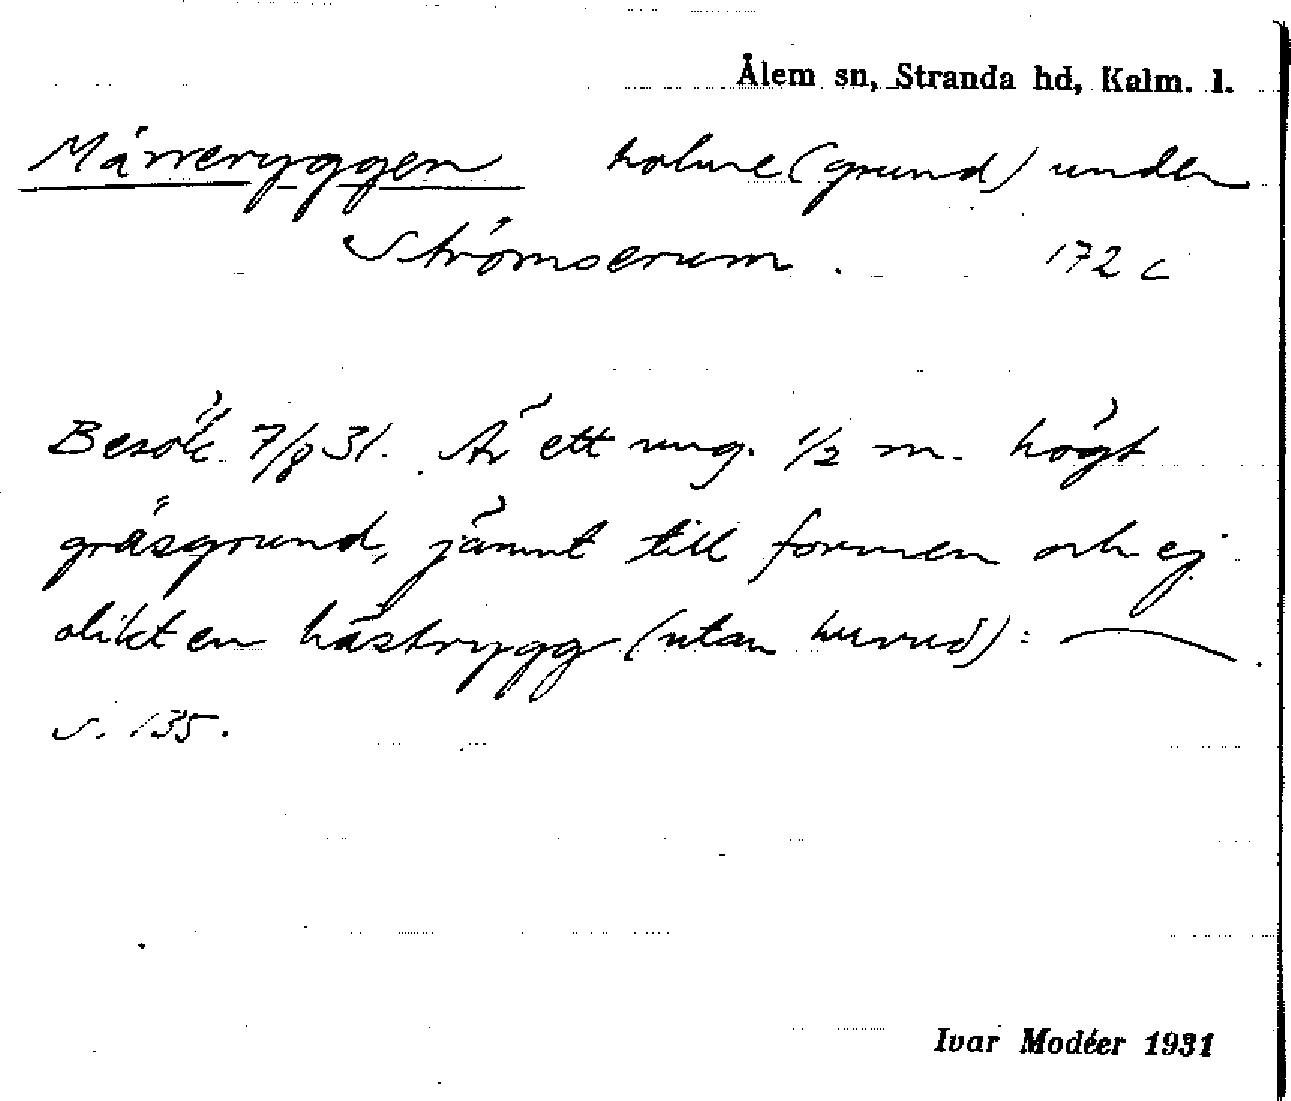 Ålem sn, Stranda hd, Kalm. l.
Märreryggen holme (grund) under
Strömserum. 172 c
Besök 7/8 31. Är ett ung. 1/2 m. högt
gräsgrund, jämnt till formen och ej
olikt en hästrygg (utan huvud):
s. 135.
Ivar Modéer 1931